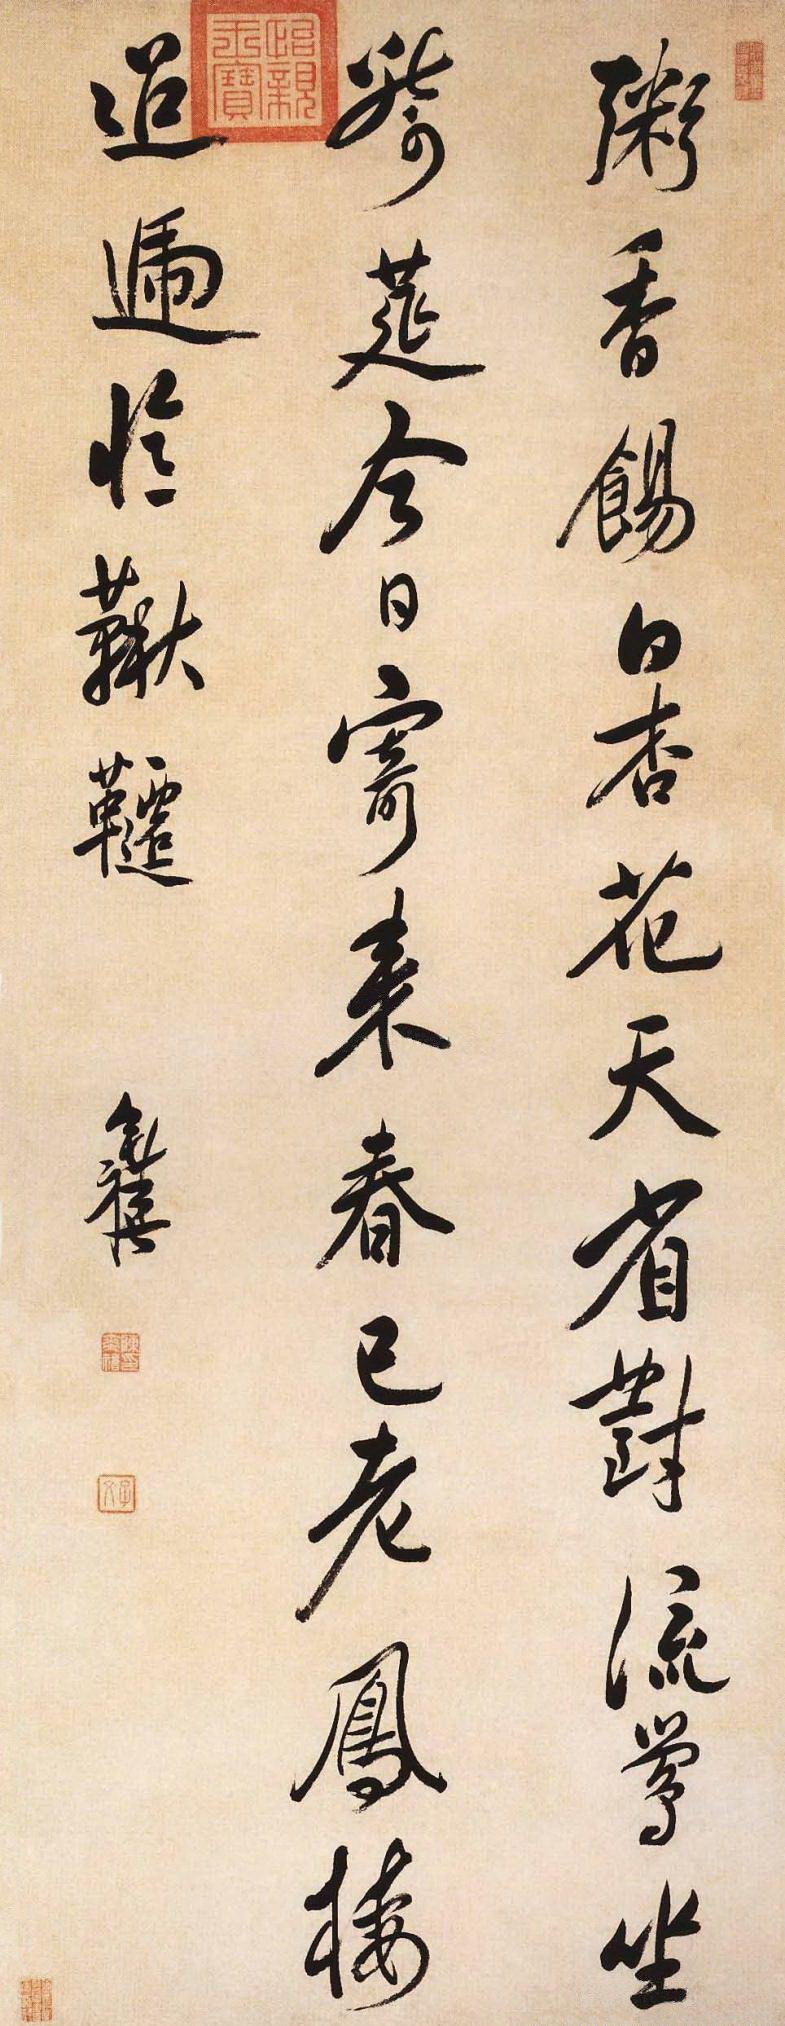 粥香餳白杏花天省對流鶯坐
綺筵今日寄來春已老鳳樓
迢遞憶鞦韆
奕禧
怡親王寶
子文